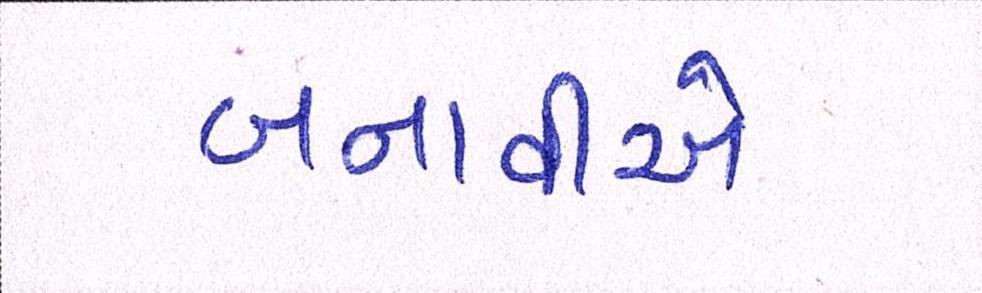 બનાવીએ